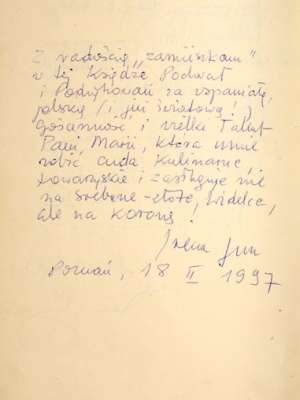 Z radością „zamieszkam"
w tej Księdze Pochwał
i Podziękowań za wspaniałą,
polską (i już światową!)
gościnność i wielki Talent
Pani Marii, która umie
robić cuda kulinarne,
towarzyskie i zasługuje nie
na srebrne-złote, widelce,
ale na koronę!
Irena Jun
Poznań, 18 II 1997